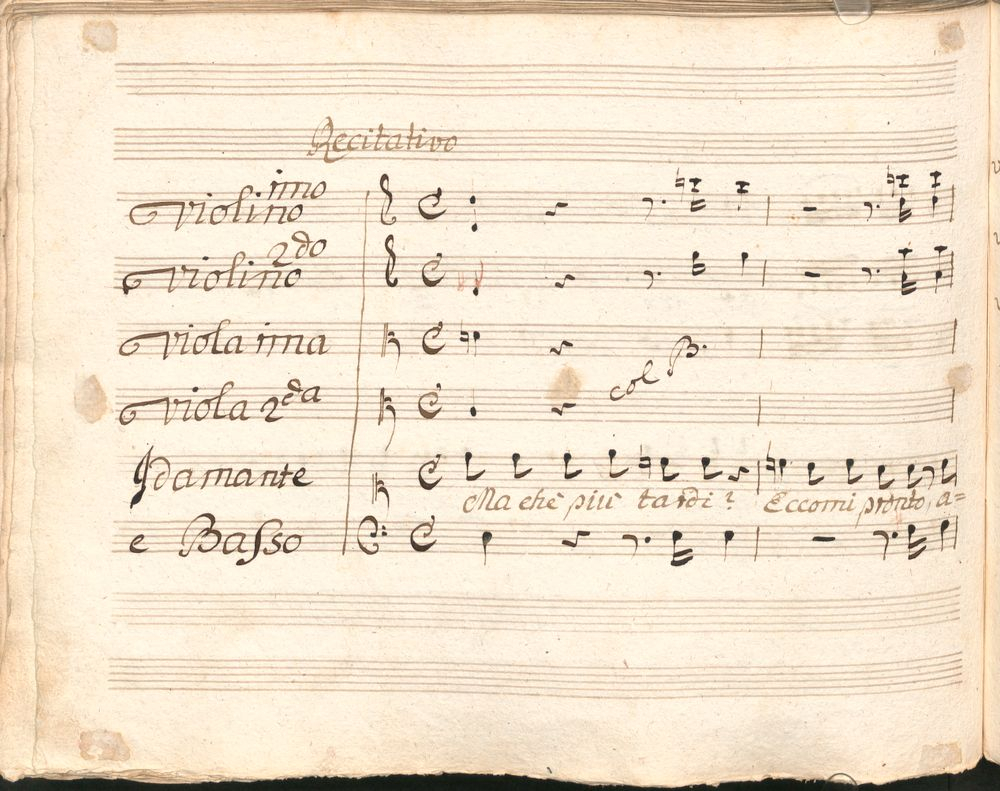 Recitativo
Violino imo
Violino 2do
Viola ima
col B.
Viola 2da
Idamante
Ma che più tardi? Eccomi pronto, a=
e Basso